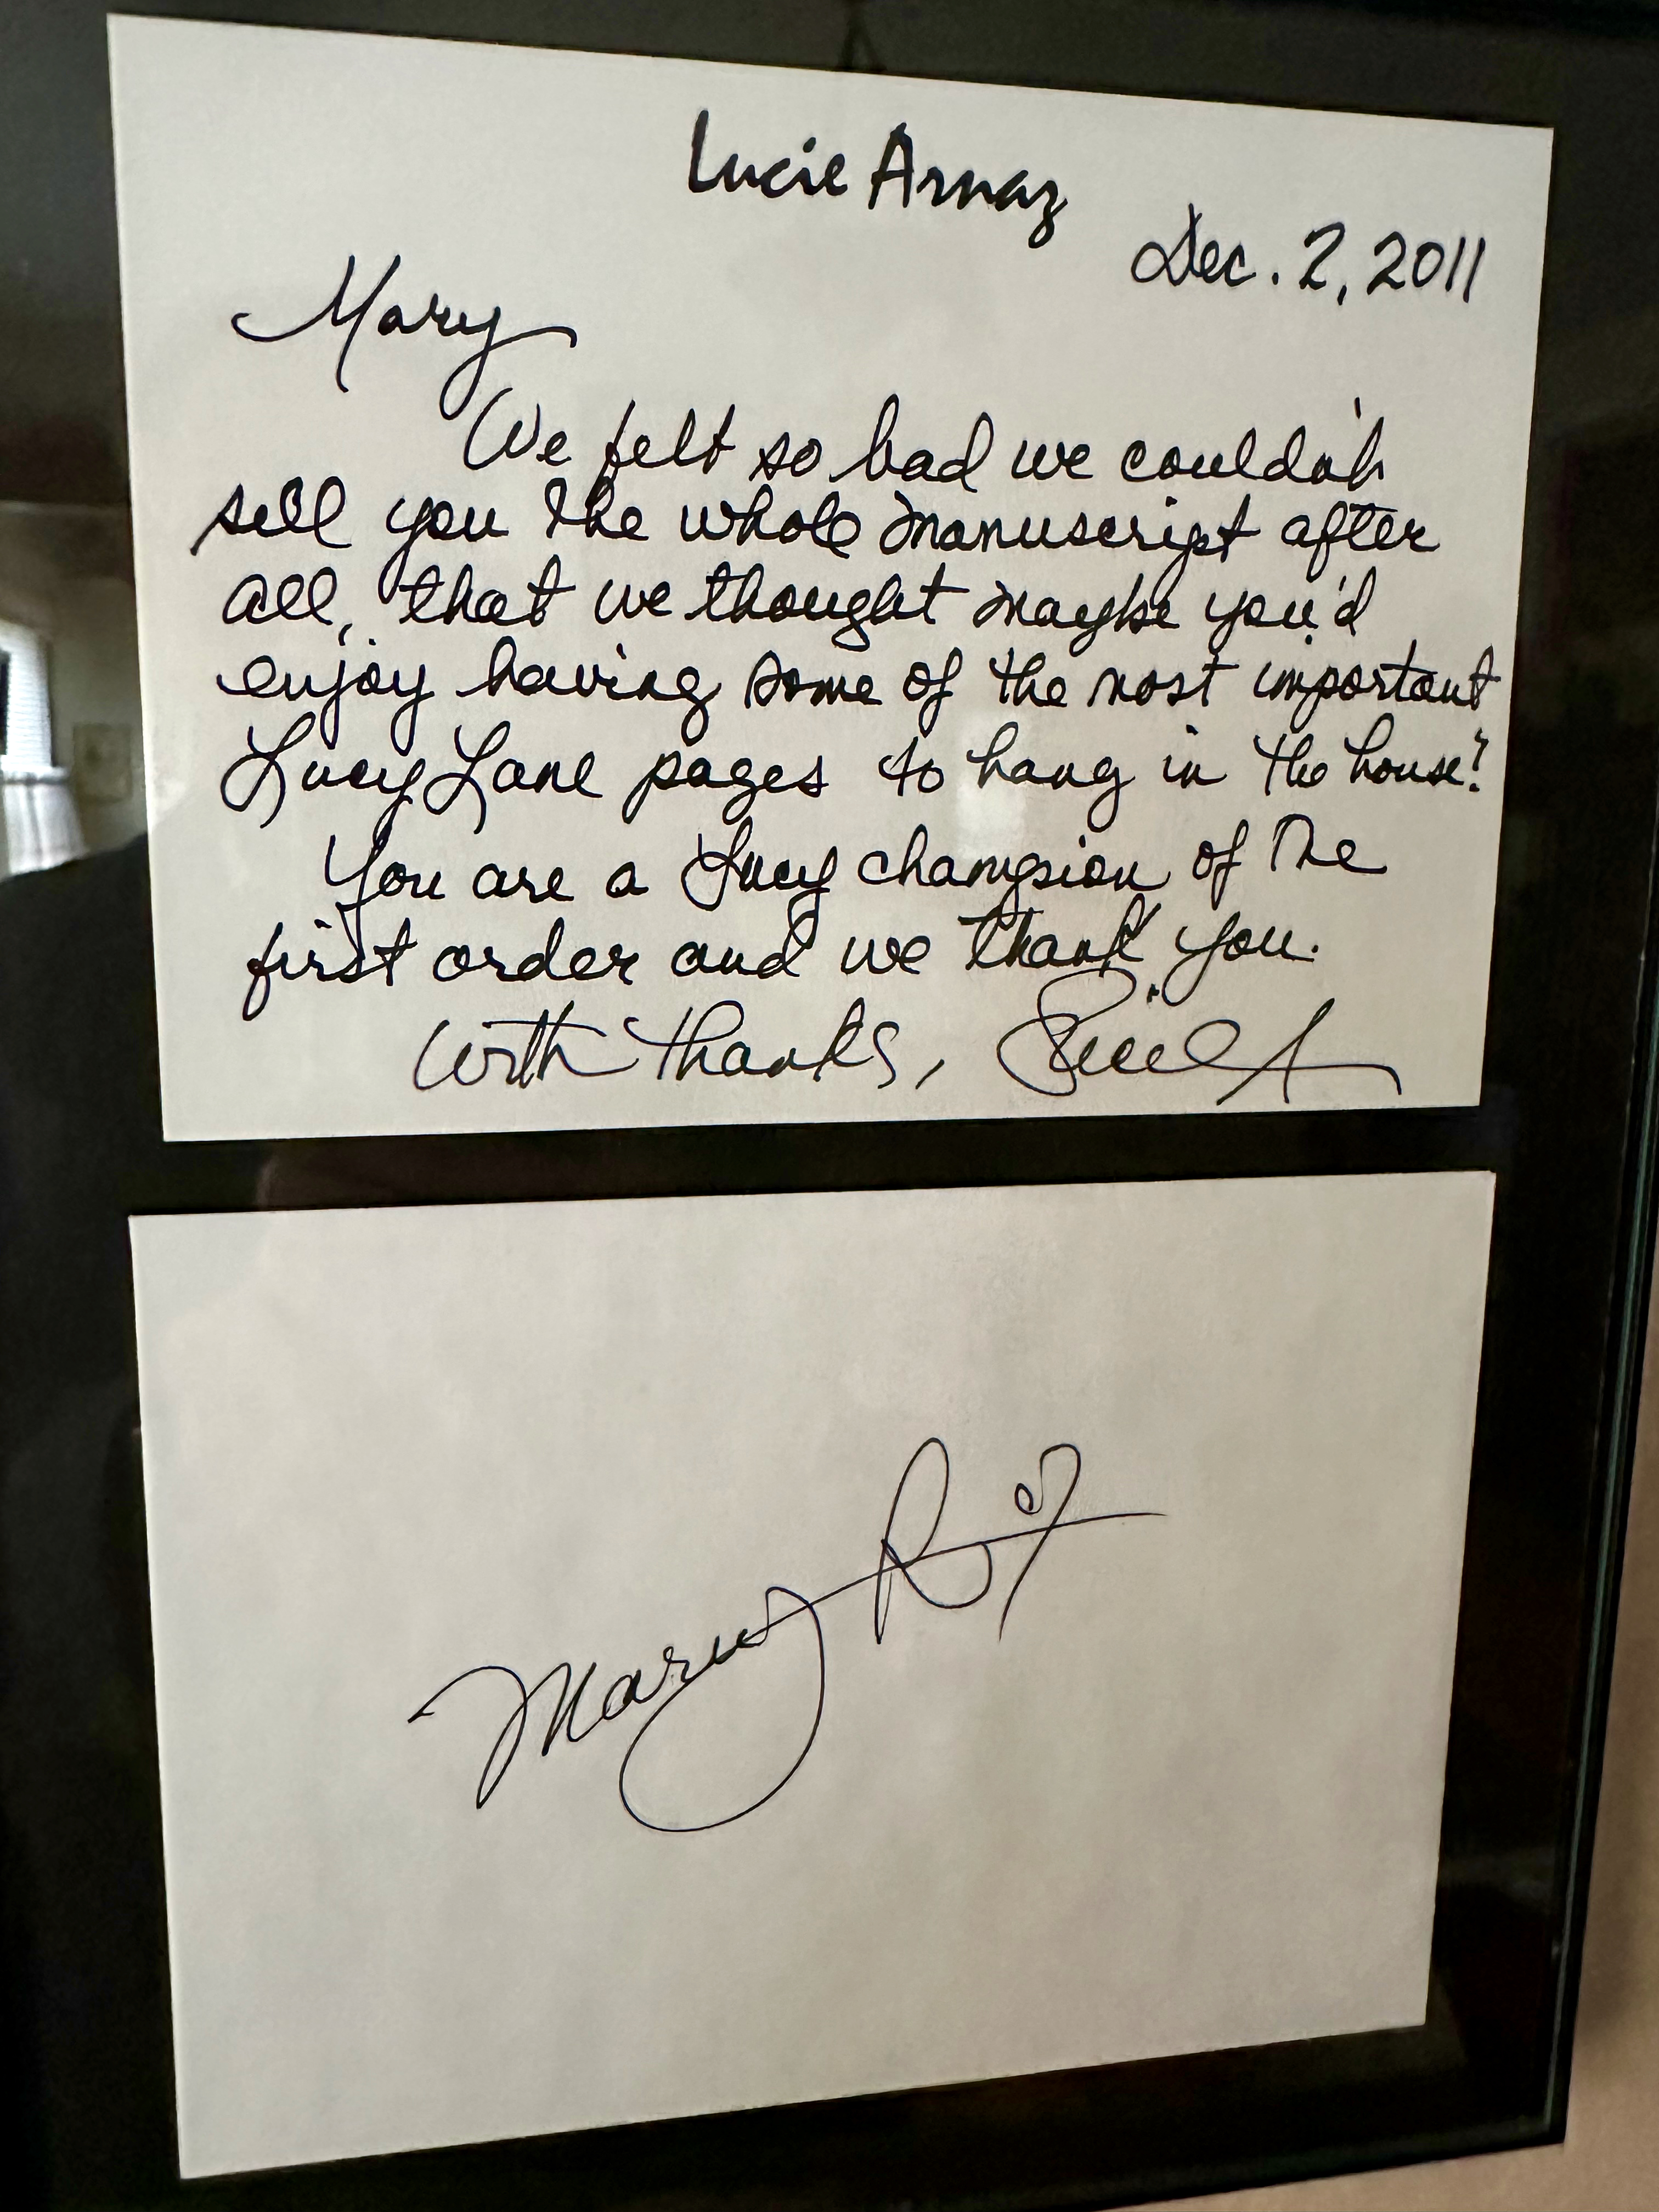 Lucie Arnaz
Dec. 2, 2011
Mary
We felt so bad we couldn't
sell you the whole manuscript after
all, that we thought maybe you'd
enjoy having some of the most important
Lucy Lane pages to hang in the house?
You are a Lucy champion of the
first order and we thank you.
With thanks, Lucie A
Mary